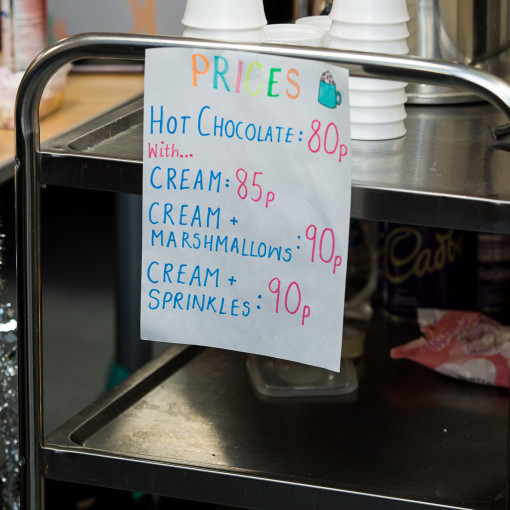 PRICES
HOT CHOCOLATE: 80p
With...
CREAM: 85p
CREAM +
MARSHMALLOWS: 90p
CREAM +
SPRINKLES: 90p